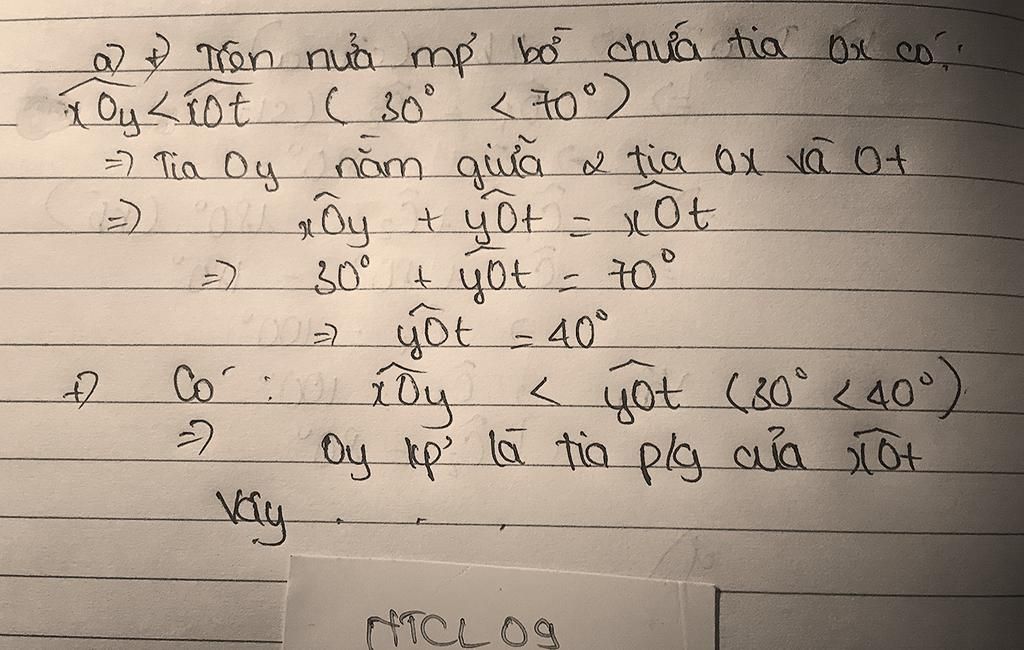 a) +) Trên nửa mp bờ chứa tia Ox có:
xÔy < xÔt ( 30° < 70°)
=> Tia Oy nằm giữa 2 tia Ox và Ot
=> xÔy + yÔt = xÔt
=> 30° + yÔt = 70°
=> yÔt = 40°
+) Có : xÔy < yÔt (30° < 40°)
=> Oy kp' là tia p/g của xÔt
Vậy . . .
NTCL 09